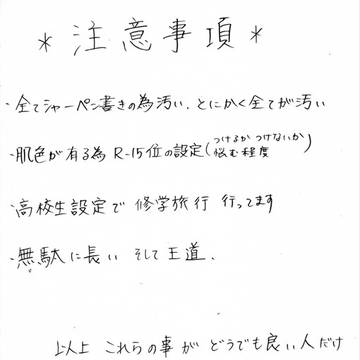 *注意事項*
・全てシャーペン書きの為汚い、とにかく全てが汚い
・肌色が有る為 R-15位の設定(つけるかつけないか悩む程度)
・高校生設定で 修学旅行 行ってます
・無駄に長い そして王道.
以上 これらの事が どうでも良い人だけ